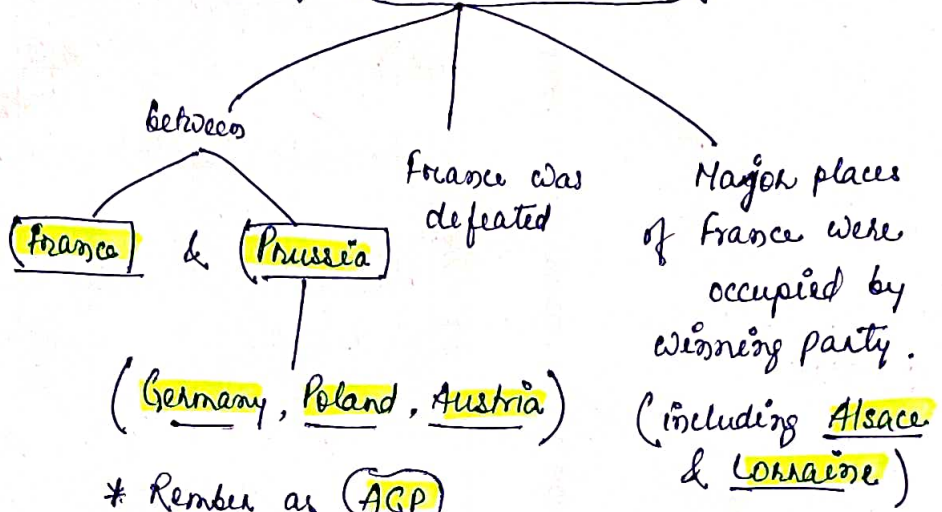 between
France & Prussia
(Germany, Poland, Austria)
* Rember as AGP
France was
defeated
Major places
of France were
occupied by
winning party.
(including Alsace
& Lorraine)